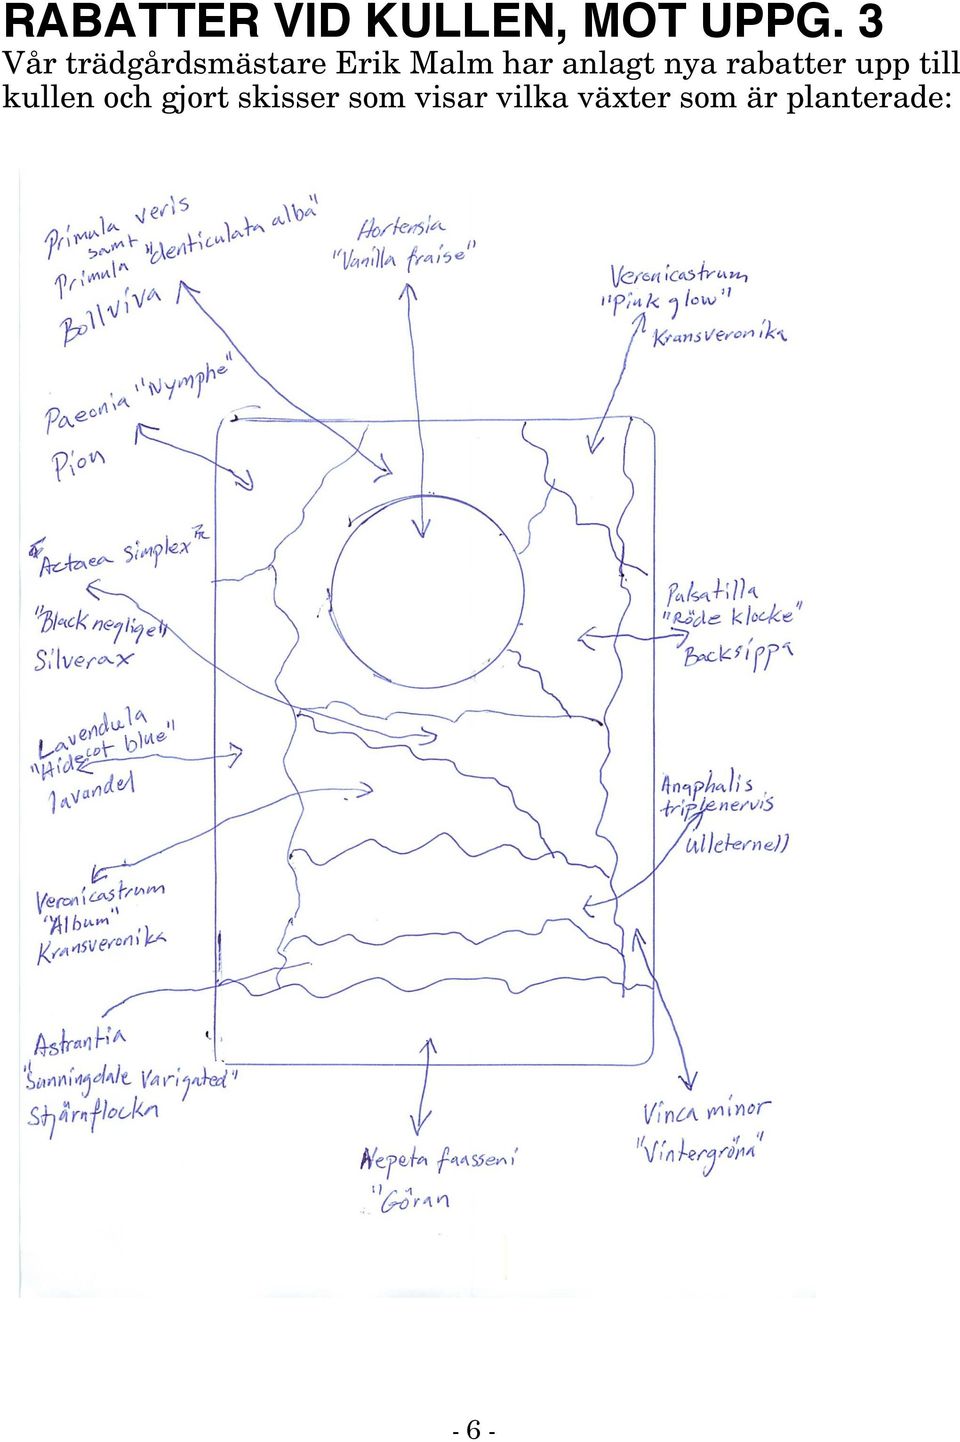 RABATTER VID KULLEN, MOT UPPG. 3
Vår trädgårdsmästare Erik Malm har anlagt nya rabatter upp till
kullen och gjort skisser som visar vilka växter som är planterade:
Primula veris
samt
Primula "denticulata alba"
Bollviva
Hortensia
"Vanilla fraise"
Veronicastrum
"Pink glow"
Kransveronika
Paeonia "Nymphe"
Pion
Actaea Simplex
"Black negligee"
Silverax
Pulsatilla
"Röde klocke"
Backsippa
Lavendula
"Hidecot blue"
lavandel
Anaphalis
triplenervis
Ulleternell
Veronicastrum
"Album"
Kransveronika
Astrantia
"Sunningdale Varigated"
Stjärnflocka
Nepeta faasseni
"Göran
Vinca minor
"Vintergröna"
- 6 -